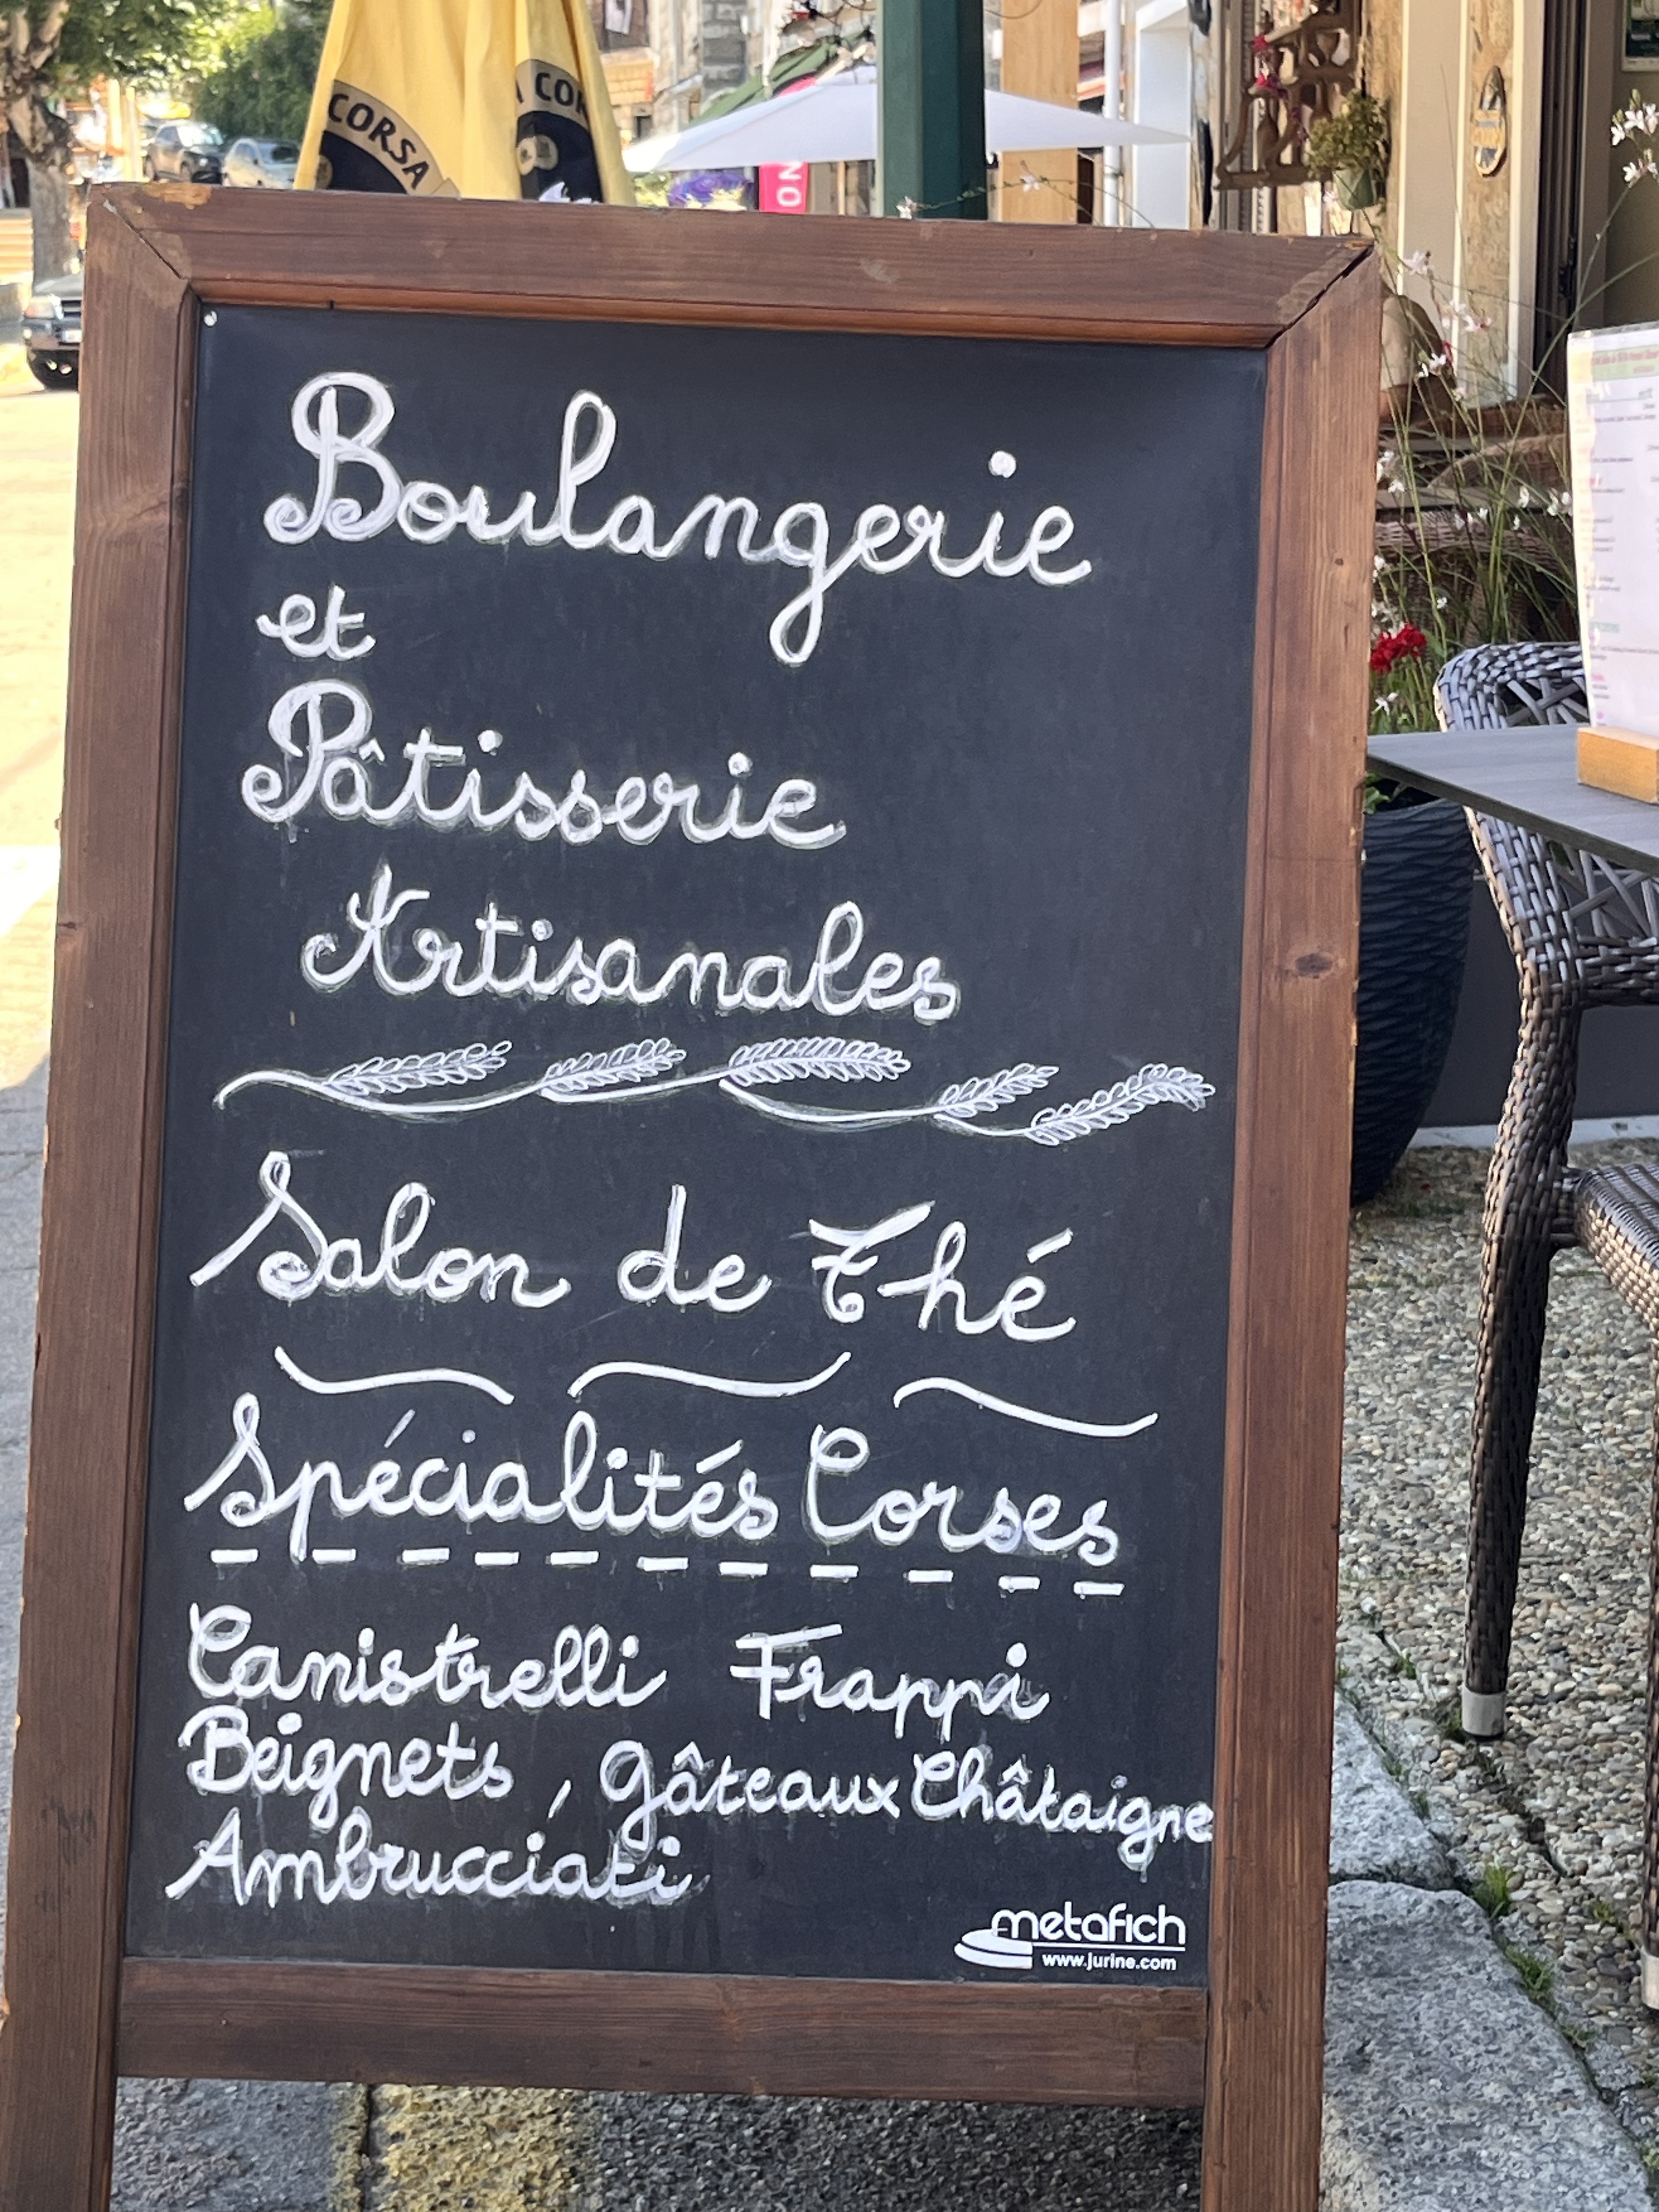 CORSA
COR
NO
Boulangerie
et
Pâtisserie
Artisanales
Salon de Thé
Spécialités Corses
Canistrelli Frappi
Beignets, gâteaux Châtaigne
Ambrucciati
metafich
www.jurine.com